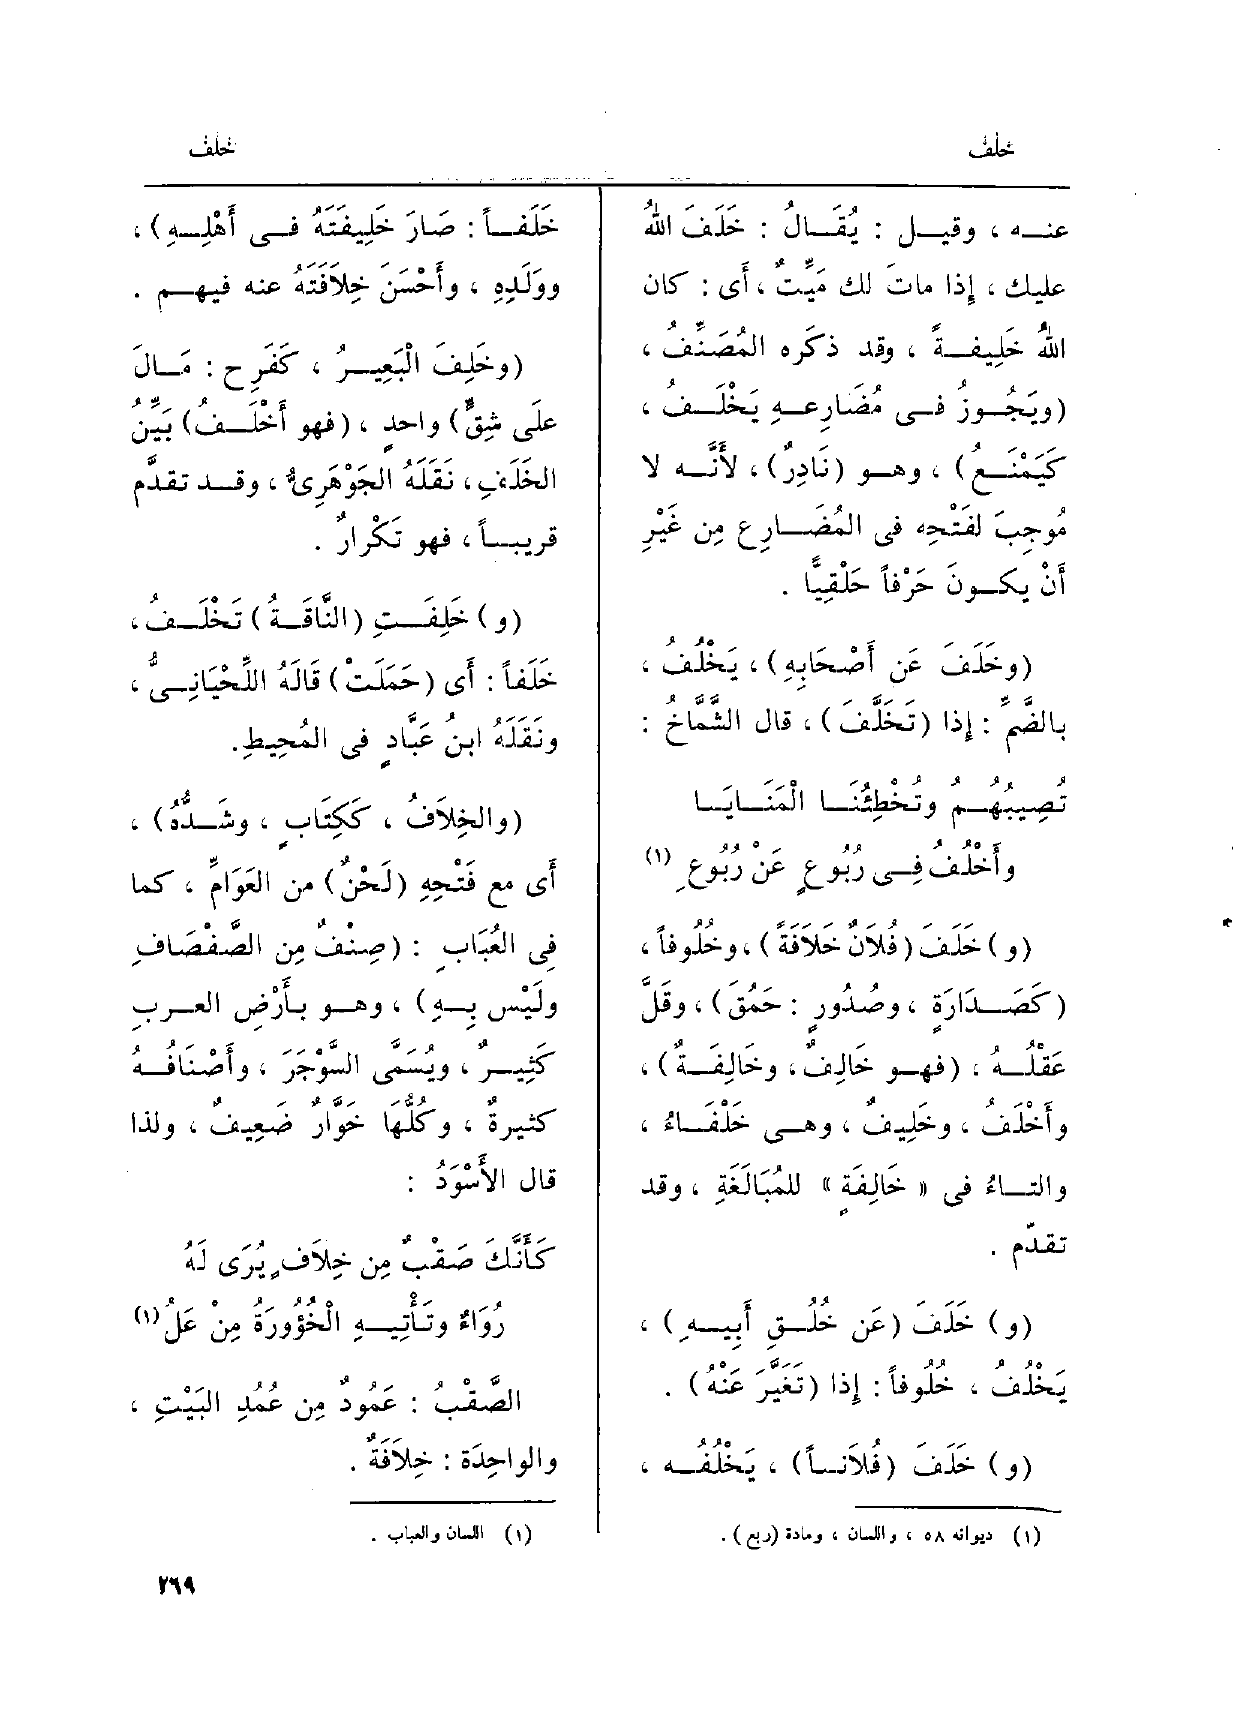 خلف
خلف
عنـه ، وقيـل : يُقَـالُ : خَلَفَ اللهُ
عليك ، إذا ماتَ لك مَيِّتٌ ، أى : كان
اللهُ خَلِيفـةً ، وقد ذكره المُصَنِّفُ ،
(ويَجُـوزُ فـى مُضَـارِعـهِ يَخْلَـفُ ،
كيَمْنَـعُ) ، وهـو (نَادِرٌ) ، لأَنَّـه لا
مُوجِبَ لفَتْحِه فى المُضَـارِعِ مِن غَيْرِ
أَنْ يكـونَ حَرْفاً حَلْقِيًّا .
(وخَلَفَ عَن أَصْحَابِهِ) ، يَخْلُفُ ،
بالضَّمِّ : إذا (تَخَلَّفَ) ، قال الشَّمَّاخُ :
تُصِيبُهُـمُ وتُخْطِئُنَـا الْمَنَـايَـا
وأَخْلُفُ فِـى رُبُوعٍ عَنْ رُبُوعِ (١)
(و) خَلَفَ (فُلَانٌ خَلَافَةً) ، وخُلُوفاً ،
(كصَـدَارَةٍ ، وصُدُورٍ : حَمُقَ) ، وقَلَّ
عَقْلُـهُ ، (فهـو خَالِفٌ ، وخَالِفَـةٌ) ،
وأَخْلَفُ ، وخَلِيفٌ ، وهـى خَلْفَـاءُ ،
والتـاءُ فى « خَالِفَةٍ » للمُبَالَغَةِ ، وقد
تقدّم .
(و) خَلَفَ (عَن خُلُـقِ أَبِيـهِ) ،
يَخْلُفُ ، خُلُوفاً : إذا (تَغَيَّرَ عَنْهُ) .
(و) خَلَفَ (فُلَانـاً) ، يَخْلُفُـه ،
(١) ديوانه ٥٨ ، واللسان ، ومادة (ربع) .
خَلَفـاً : صَارَ خَلِيفَتَهُ فـى أَهْلِـهِ) ،
ووَلَدِهِ ، وأَحْسَنَ خِلَافَتَهُ عنه فيهـم .
(وخَلِفَ الْبَعِيـرُ ، كفَرِحَ : مَـالَ
على شِقٍّ) واحدٍ ، (فهو أَخْلَـفُ) بَيِّنُ
الخَلَفِ ، نَقَلَهُ الجَوْهَرِىُّ ، وقـد تقدَّم
قريبـاً ، فهو تَكْرارٌ .
(و) خَلِفَـتِ (النَّاقَـةُ) تَخْلَـفُ ،
خَلَفاً : أى (حَمَلَتْ) قَالَهُ اللِّحْيَانِـىُّ ،
ونَقَلَهُ ابنُ عَبَّادٍ فى المُحِيطِ.
(والخِلَافُ ، ككِتَابٍ ، وشَـدُّه) ،
أى مع فَتْحِهِ (لَحْنٌ) من العَوَامِّ ، كما
فى العُبَابِ : (صِنْفٌ مِن الصَّفْصَافِ
ولَيْس بِـهِ) ، وهـو بـأَرْضِ العـربِ
كَثِيـرٌ ، ويُسَمَّى السَّوْجَرَ ، وأَصْنَافُـهُ
كثيرةٌ ، وكُلُّها خَوَّارٌ ضَعِيفٌ ، ولذا
قال الأَسْوَدُ :
كَأَنَّكَ صَقْبٌ مِن خِلَافٍ يُرَى لَهُ
رُوَاءٌ وتَأْتِيـهِ الْخُؤُورَةُ مِنْ عَلُ (١)
الصَّقْبُ : عَمُودٌ مِن عُمُدِ البَيْتِ ،
والواحِدَة : خِلَافَةٌ .
(١) اللسان والعباب .
٢٦٩